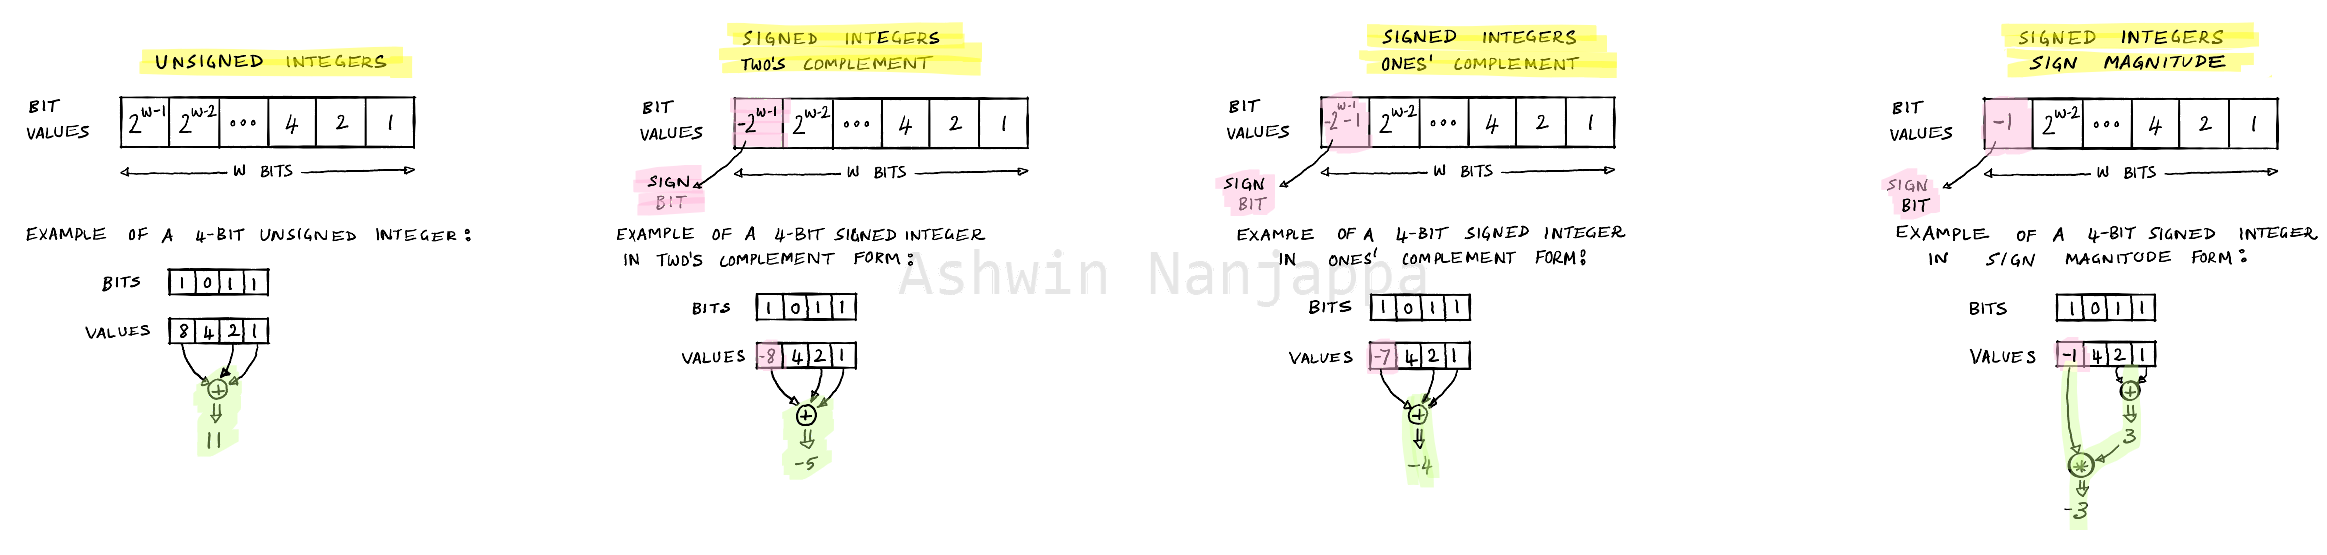 UNSIGNED INTEGERS
BIT VALUES
2^w-1 2^w-2 ... 4 2 1
W BITS
EXAMPLE OF A 4-BIT UNSIGNED INTEGER:
BITS 1 0 1 1
VALUES 8 4 2 1
+
11
SIGNED INTEGERS
TWO'S COMPLEMENT
BIT VALUES
-2^w-1 2^w-2 ... 4 2 1
W BITS
SIGN
BIT
EXAMPLE OF A 4-BIT SIGNED INTEGER
IN TWO'S COMPLEMENT FORM:
BITS 1 0 1 1
VALUES -8 4 2 1
+
-5
SIGNED INTEGERS
ONES' COMPLEMENT
BIT VALUES
-2^w-1 -1 2^w-2 ... 4 2 1
W BITS
SIGN
BIT
EXAMPLE OF A 4-BIT SIGNED INTEGER
IN ONES' COMPLEMENT FORM:
BITS 1 0 1 1
VALUES -7 4 2 1
+
-4
SIGNED INTEGERS
SIGN MAGNITUDE
BIT VALUES
-1 2^w-2 ... 4 2 1
W BITS
SIGN
BIT
EXAMPLE OF A 4-BIT SIGNED INTEGER
IN SIGN MAGNITUDE FORM:
BITS 1 0 1 1
VALUES -1 4 2 1
+
3
*
-3
Ashwin Nanjappa